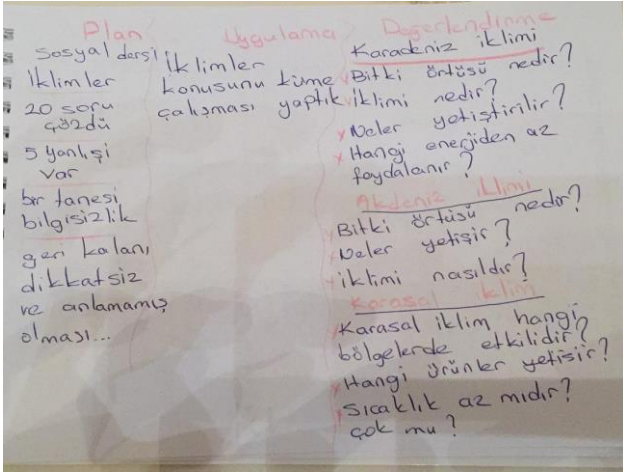 Plan
Sosyal dersi
İklimler
20 soru
çözdü
5 yanlışi
var
bir tanesi
bilgisizlik
geri kalanı
dikkatsiz
ve anlamamış
olması...
Uygulama
İklimler
konusunu küme
çalışması yaptık
Değerlendirme
Karadeniz iklimi
Bitki örtüsü nedir?
iklimi nedir?
Neler yetiştirilir?
Hangi enerjiden az
faydalanır?
Akdeniz iklimi
Bitki örtüsü nedir?
Neler yetişir?
iklimi nasıldır?
Karasal iklim
Karasal iklim hangi
bölgelerde etkilidir?
Hangi ürünler yetişir?
Sıcaklık az mıdır?
çok mu?